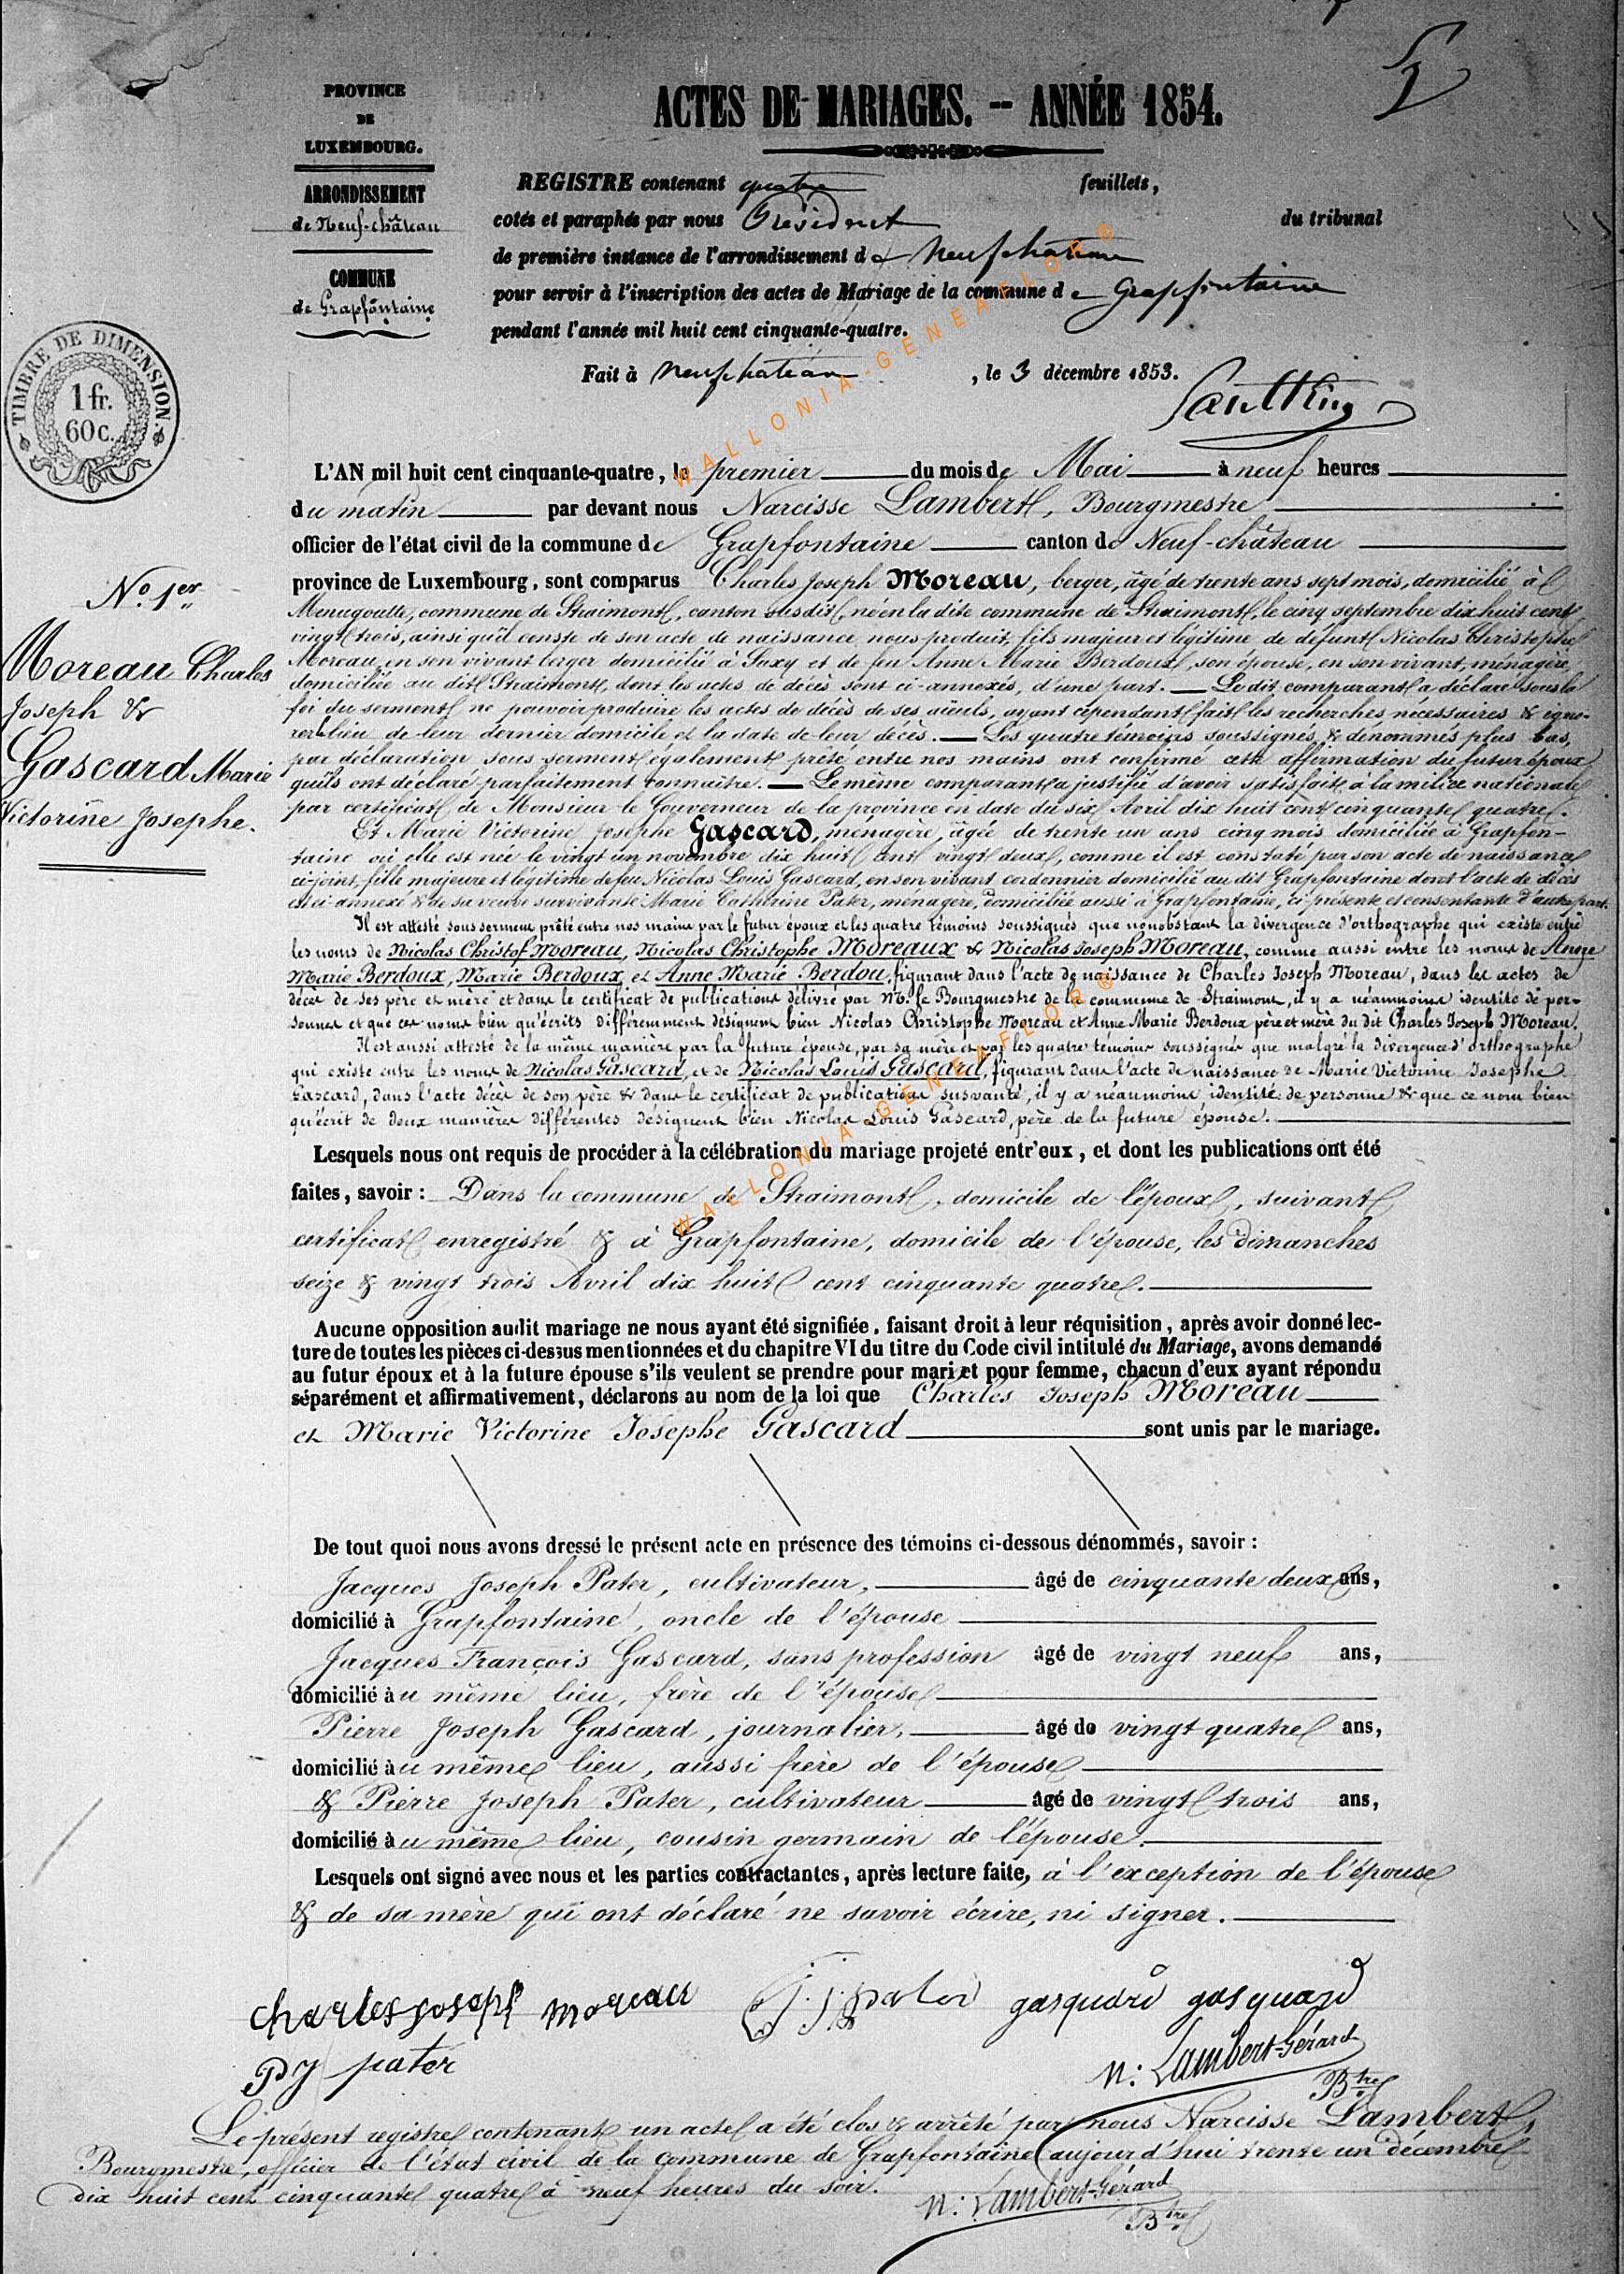 PROVINCE
DE
LUXEMBOURG.
ARRONDISSEMENT
de Neuf-château
COMMUNE
de Grapfontaine
ACTES DE MARIAGES. -- ANNÉE 1854.
REGISTRE contenant quatre feuillets,
cotés et paraphés par nous Président du tribunal
de première instance de l'arrondissement de Neufchateau
pour servir à l'inscription des actes de Mariage de la commune de Grapfontaine
pendant l'année mil huit cent cinquante-quatre.
Fait à Neufchateau, le 3 décembre 1853.
TIMBRE DE DIMENSION.
1 fr.
60 c.
L'AN mil huit cent cinquante-quatre, le premier du mois de Mai à neuf heures
du matin par devant nous Narcisse Lambert, Bourgmestre
officier de l'état civil de la commune de Grapfontaine canton de Neuf-château
province de Luxembourg, sont comparus Charles Joseph Moreau, berger, âgé de trente ans sept mois, domicilié à
Menugoutte, commune de Straimont, canton susdit, né en la dite commune de Straimont, le cinq septembre dix huit cent
vingt trois, ainsi qu'il conste de son acte de naissance nous produit, fils majeur et légitime de défunt Nicolas Christophe
Moreau, en son vivant berger domicilié à Suxy et de feu Anne Marie Berdoux, son épouse, en son vivant, ménagère,
domiciliée au dit Straimont, dont les actes de décès sont ci-annexés, d'une part. — Le dit comparant a déclaré sous la
foi du serment ne pouvoir produire les actes de décès de ses aïeuls, ayant cependant fait les recherches nécessaires & igno-
rer le lieu de leur dernier domicile et la date de leur décès. — Les quatre témoins soussignés & dénommés plus bas,
par déclaration sous serment également prêté entre nos mains ont confirmé cette affirmation du futur époux
qu'ils ont déclaré parfaitement connaître. — Le même comparant a justifié d'avoir satisfait à la milice nationale
par certificat de Monsieur le Gouverneur de la province en date du six Avril dix huit cent cinquante quatre.
Et Marie Victorine Josephe Gascard, ménagère, âgée de trente un ans cinq mois domiciliée à Grapfon-
taine où elle est née le vingt un novembre dix huit cent vingt deux, comme il est constaté par son acte de naissance
ci-joint, fille majeure et légitime de feu Nicolas Louis Gascard, en son vivant cordonnier domicilié au dit Grapfontaine dont l'acte de décès
est ci annexé & de sa veuve survivante Marie Catherine Pater, ménagère, domiciliée aussi à Grapfontaine, ci présente et consentante d'autre part.
Il est attesté sous serment prêté entre nos mains par le futur époux et les quatre témoins soussignés que nonobstant la divergence d'orthographe qui existe entre
les noms de Nicolas Christof Moreau, Nicolas Christophe Moreaux & Nicolas Joseph Moreau, comme aussi entre les noms de Anne
Marie Berdoux, Marie Berdoux, et Anne Marie Berdou, figurant dans l'acte de naissance de Charles Joseph Moreau, dans les actes de
décès de ses père et mère et dans le certificat de publications délivré par M. le Bourgmestre de la commune de Straimont, il y a néanmoins identité de per-
sonnes et que ces noms bien qu'écrits différemment désignent bien Nicolas Christophe Moreau et Anne Marie Berdoux père et mère du dit Charles Joseph Moreau.
Il est aussi attesté de la même manière par la future épouse, par sa mère et par les quatre témoins soussignés que malgré la divergence d'orthographe
qui existe entre les noms de Nicolas Gascard, et de Nicolas Louis Gascard, figurant dans l'acte de naissance de Marie Victorine Josephe
Gascard, dans l'acte décès de son père & dans le certificat de publication susvanté, il y a néanmoins identité de personne & que ce nom bien
qu'écrit de deux manières différentes désignent bien Nicolas Louis Gascard, père de la future épouse.
No. 1er
Moreau Charles
Joseph &
Gascard Marie
Victorine Josephe.
Lesquels nous ont requis de procéder à la célébration du mariage projeté entr'eux, et dont les publications ont été
faites, savoir : Dans la commune de Straimont, domicile de l'époux, suivant
certificat enregistré & à Grapfontaine, domicile de l'épouse, les dimanches
seize & vingt trois Avril dix huit cent cinquante quatre.
Aucune opposition audit mariage ne nous ayant été signifiée, faisant droit à leur réquisition, après avoir donné lec-
ture de toutes les pièces ci-dessus mentionnées et du chapitre VI du titre du Code civil intitulé du Mariage, avons demandé
au futur époux et à la future épouse s'ils veulent se prendre pour mari et pour femme, chacun d'eux ayant répondu
séparément et affirmativement, déclarons au nom de la loi que Charles Joseph Moreau
et Marie Victorine Josephe Gascard sont unis par le mariage.
De tout quoi nous avons dressé le présent acte en présence des témoins ci-dessous dénommés, savoir :
Jacques Joseph Pater, cultivateur, âgé de cinquante deux ans,
domicilié à Grapfontaine, oncle de l'épouse
Jacques François Gascard, sans profession âgé de vingt neuf ans,
domicilié au même lieu, frère de l'épouse
Pierre Joseph Gascard, journalier, âgé de vingt quatre ans,
domicilié au même lieu, aussi frère de l'épouse
& Pierre Joseph Pater, cultivateur âgé de vingt trois ans,
domicilié au même lieu, cousin germain de l'épouse.
Lesquels ont signé avec nous et les parties contractantes, après lecture faite, à l'exception de l'épouse
& de sa mère qui ont déclaré ne savoir écrire, ni signer.
charles joseph moreau j. j. pater gasquard gasquard
P J pater N: Lambert-Gérard
Btre
Le présent registre contenant un acte a été clos & arrêté par nous Narcisse Lambert,
Bourgmestre, officier de l'état civil de la commune de Grapfontaine aujourd'hui trente un décembre
dix huit cent cinquante quatre à neuf heures du soir. N: Lambert-Gérard
Btre
WALLONIA-GENEAFLOR®
WALLONIA-GENEAFLOR®